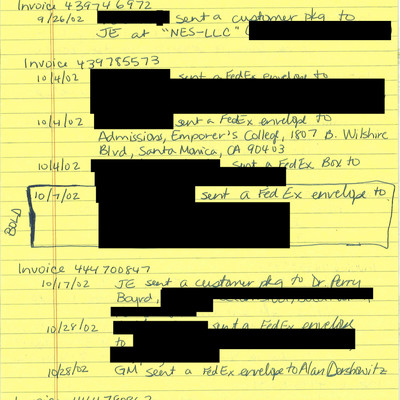 Invoice 439746972
9/26/02 sent a customer pkg to
JE at "NES-LLC" (
Invoice 439785573
10/4/02 sent a FedEx envelope to
10/4/02 sent a FedEx envelope to
Admissions, Emporer's College, 1807 B. Wilshire
Blvd, Santa Monica, CA 90403
10/4/02 sent a FedEx Box to
10/7/02 sent a FedEx envelope to
BOLD
Invoice 444700847
10/17/02 JE sent a customer pkg to Dr. Perry
Bayrd,
10/28/02 sent a FedEx envelope
to
10/28/02 GM sent a FedEx envelope to Alan Dershowitz